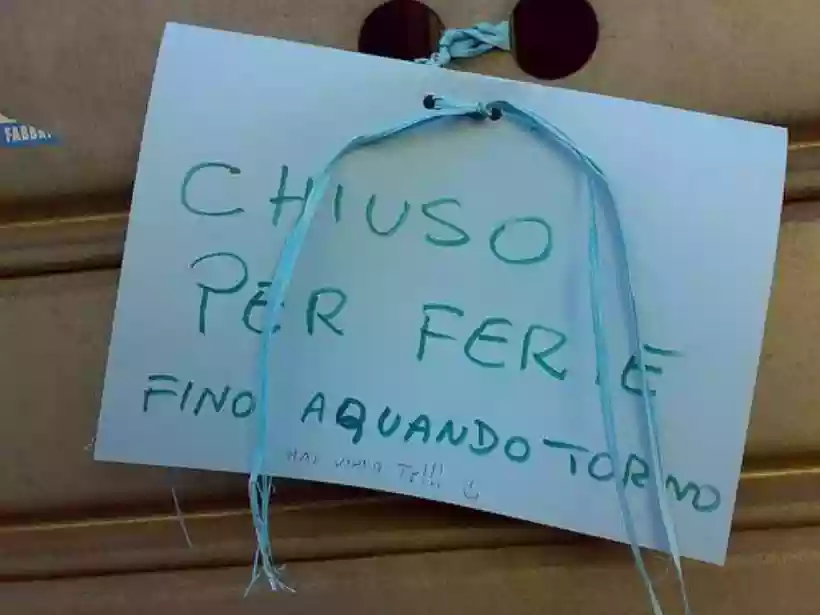 CHIUSO
PER FERIE
FINO AQUANDO TORNO
TE!!!
FABBR